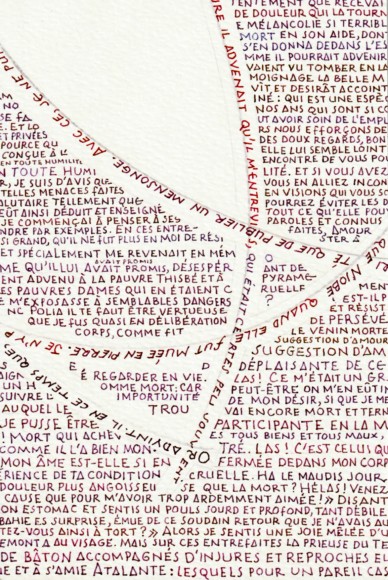 TEMENT QUE RECEVAI
DE DOULEUR QUI LA TOURN
E MÉLANCOLIE SI TERRIBL
MORT EN SON AIDE, DON
S'EN DONNA DEDANS L'ES
MME IL POURRAIT ADVENIR
VAIENT VU TOMBER EN LA
MOIGNAGE LA BELLE M
VIT ET DESIRÂT ACCOINT
INÉ: QUI EST UNE ESPÈC
NOS ANS QUI SONT SI CO
UT AVOIR SOIN DE L'EMPL
RS NOUS EFFORÇONS DE
DES DOUX REGARDS, BON
ELLE LUI SEMBLE LOINT
ENCONTRE DE VOUS PO
LITÉ. ET SI VOUS AVEZ
VOUS EN ALLIEZ INCON
EN VISIONS QUI VOUS SO
POURREZ ÉVITER LES D
TOUT CE QU'ELLE FOU
PAROLES ET CONNUS
FAITES, AMOUR
URE IL ADVENAIT QU'IL M'ENTREVU
AVEC CE JE NE PU
PUBLIER UN MENSONGE.
QUE DE
ET PRIVÉES
POURCE QU
CONÇUE À L
EN TOUTE HUMILITÉ
EN TOUTE HUMI
R, JE SUIS D'AVIS QUE
TELLES MENACES FAITES
ALUTAIRE TELLEMENT QUE
EÛT AINSI DÉDUIT ET ENSEIGNÉ
JE COMMENÇAI À PENSER À SES
NDRE PAR EXEMPLES. EN CES ENTRE-
SI GRAND, QU'IL NE FUT PLUS EN MOI DE RÉSI
ET SPÉCIALEMENT ME REVENAIT EN MÉM
AVAIT PROMIS
ME QU'ILLUI AVAIT PROMIS, DÉSESPÉR
ENT ADVENU À LA PAUVRE THISBÉ ET À
ES PAUVRES DAMES QUI EN ÉTAIENT C
E M'EXPOSASSE À SEMBLABLES DANGERS
NC POLIA IL TE FAUT ÊTRE VERTUEUSE
QUE JE FUS QUASI EN DÉLIBÉRATION
CORPS, COMME FIT
O
ANT DE
PYRAME
RUELLE
?
NIOBÉ
QUAND ELLE FUT MUÉE EN PIERRE. JE N'Y P
IL EN CE TEMPS QUE
MENT
EST-IL
ET RÉSIST
DE PERSÉVÉ
LE VENIN MORTE
SUGGESTION D'AMOUR
SUGGESTION D'AM
DÉPLAISANTE DE CE
LAS! CE M'ÉTAIT UN GR
PEUT-ÊTRE ON M'EN EÛT IN
DE MON DÉSIR, SI QUE JE ME
VAI ENCORE MORT ET TERN
PARTICIPANTE EN LA M
ES TOUS BIENS ET TOUS MAUX
É REGARDER EN VIE.
OMME MORT: CAR
IMPORTUNITÉ
TROU
AIGN
UN H
SUIVRE L
AUQUEL LE
UE PUISSE ÊTRE
! MORT QUI ACHEV
COMME IL L'A BIEN MON-
TRÉ. LAS! C'EST CELUI QU
MON ÂME EST-ELLE SI EN
FERMÉE DEDANS MON COR
RIENCE DE TA CONDITION
CRUELLE. HA LE MAUDIS JOUR
DOULEUR PLUS ANGOISSEU
SE QUE LA MORT? HÉLAS! VENEZ
CAUSE QUE POUR M'AVOIR TROP ARDEMMENT AIMÉE.» DISANT
ON ESTOMAC ET SENTIS UN POULS SOURD ET PROFOND, TANT DÉBILE
BAHIE ET SURPRISE, ÉMUE DE CE SOUDAIN RETOUR QUE JE N'AVAIS AU
TEZ-VOUS AINSI À TORT?» ALORS JE SENTIS UNE JOIE MÊLÉE D'U
EMONTA AU VISAGE. MAIS SUR CES ENTREFAITES LA PRIEUSE DU T
DE BÂTON ACCOMPAGNÉS D'INJURES ET REPROCHES EN
UE ET À S'AMIE ATALANTE: LESQUELS POUR UN PAREIL CAS